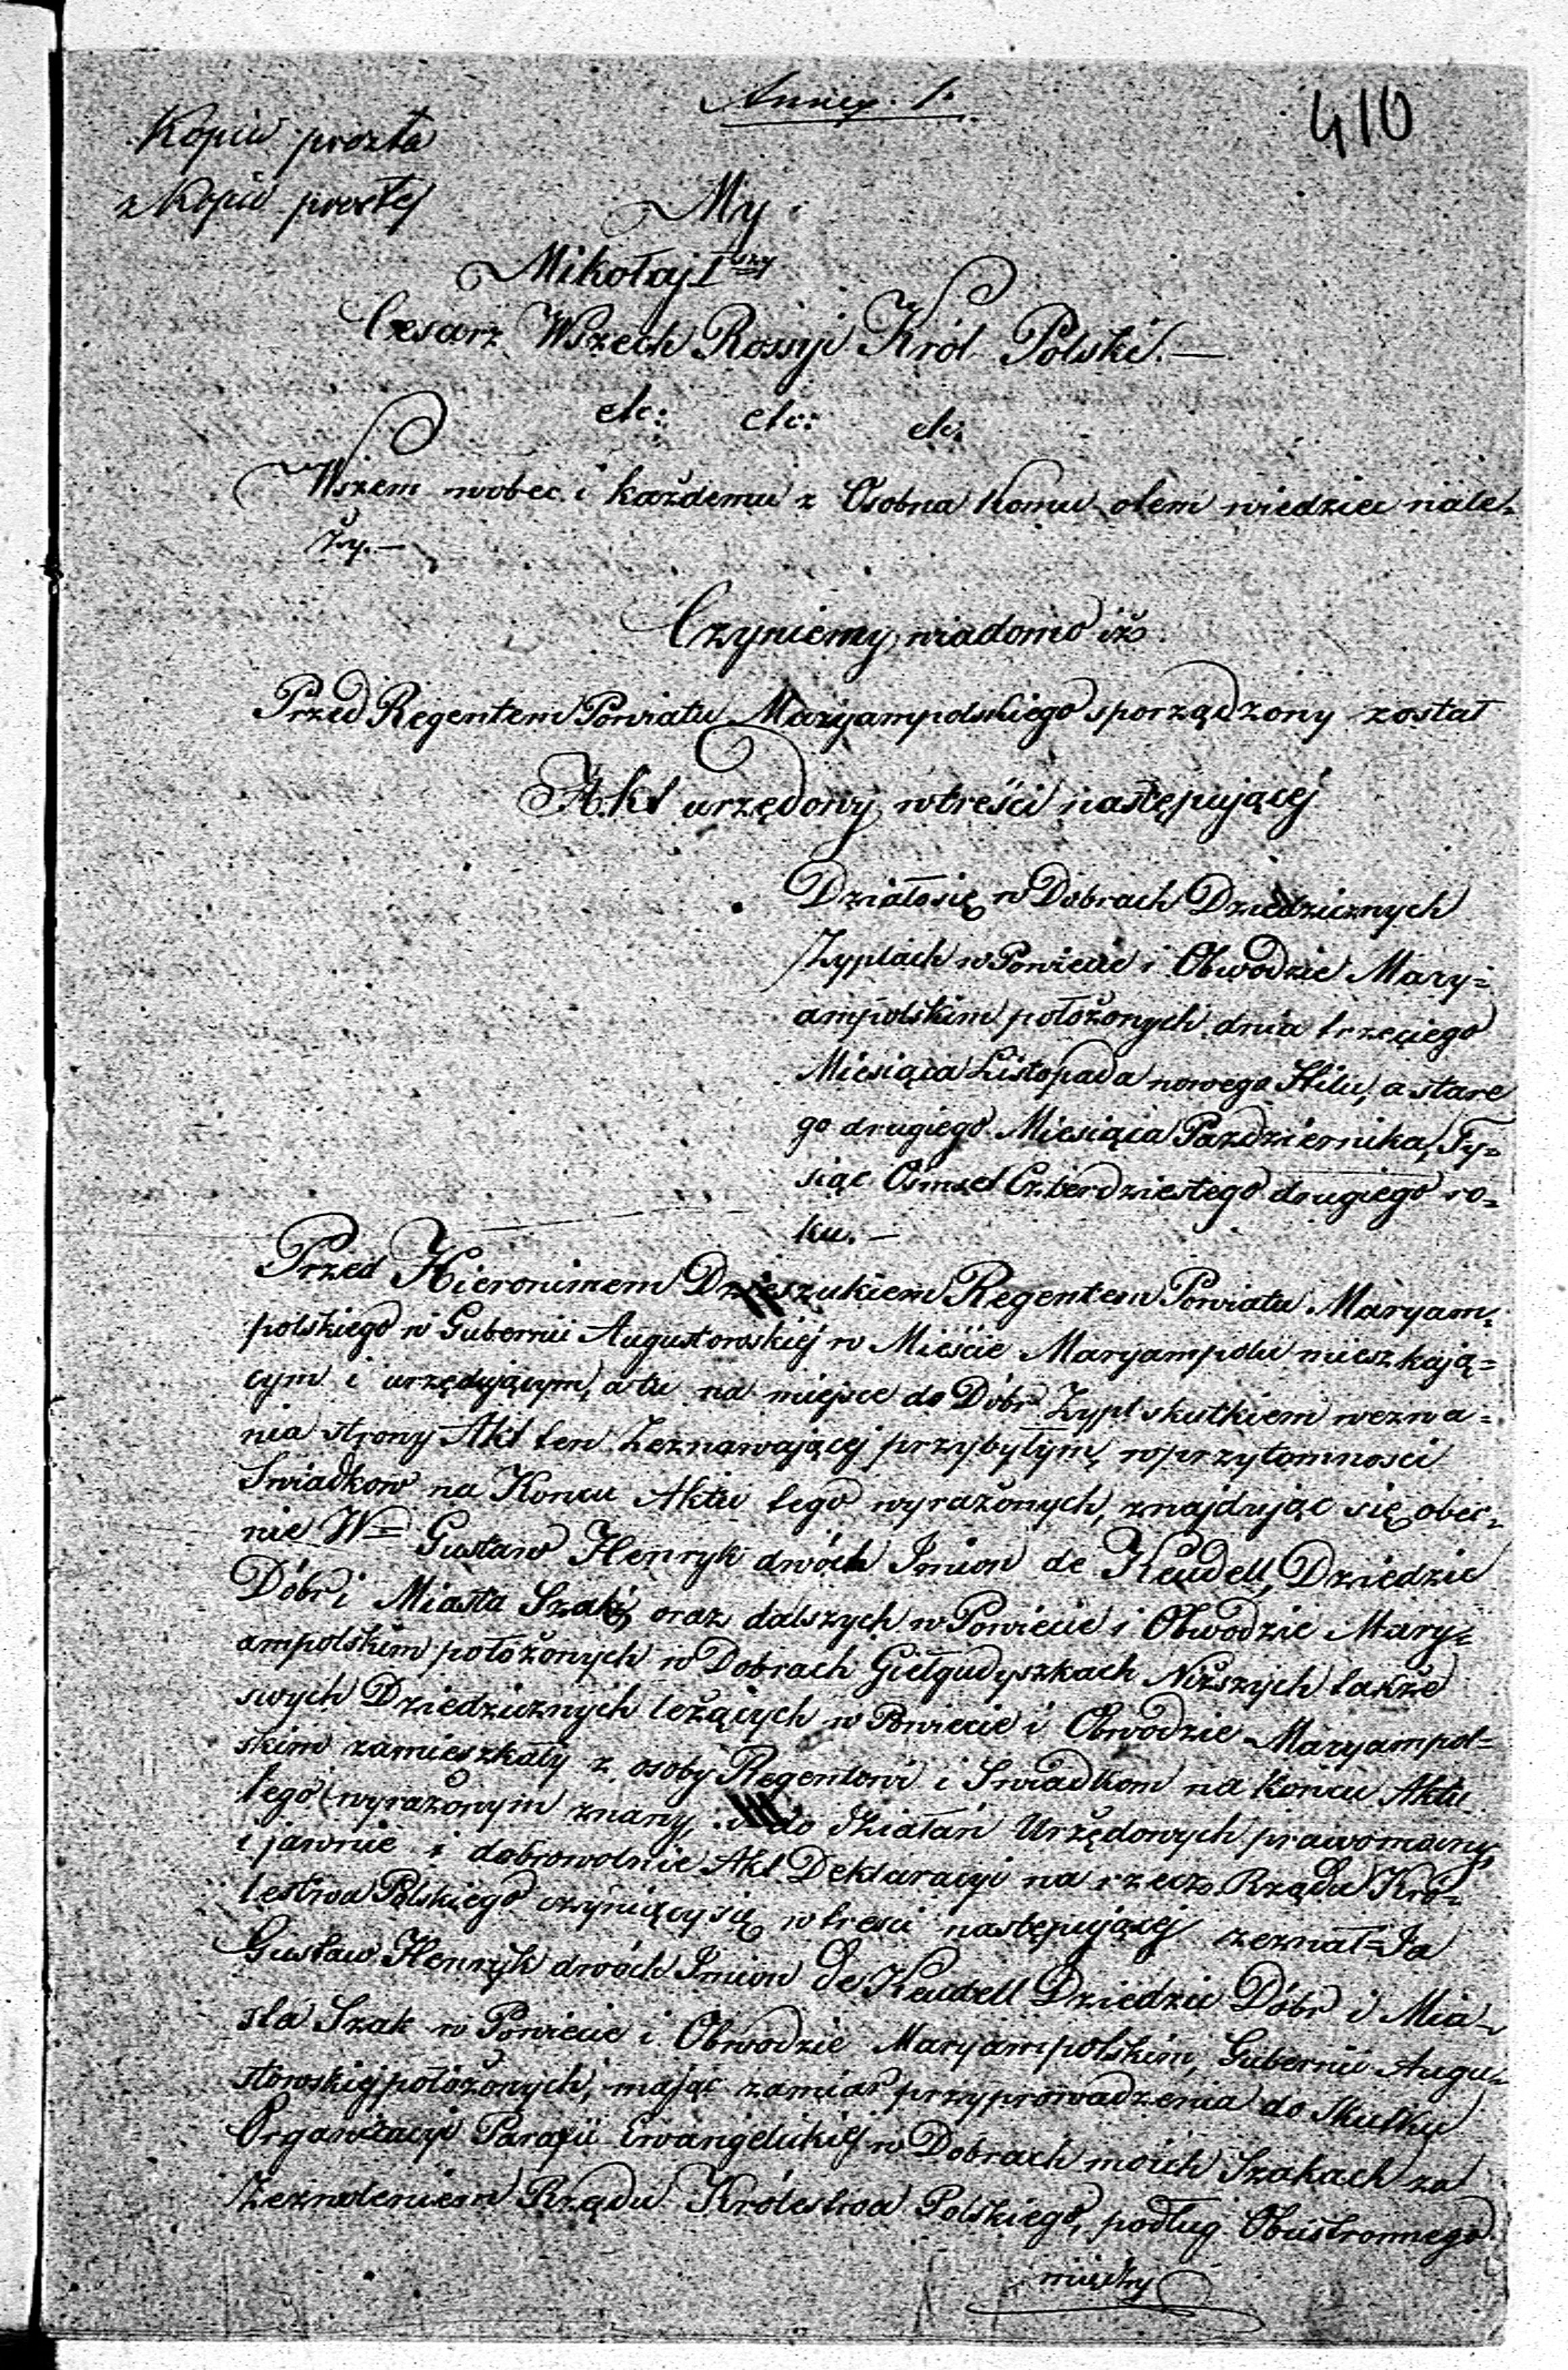 Annex. 1.
410
Kopia prosta
z Kopii prostej
My
Mikołaj I wszy
Cesarz Wszech Rossyi Król Polski. —
etc: etc: etc:
Wszem wobec i każdemu z Osobna Komu otem wiedzieć nale-
ży. —
Czyniemy wiadomo iż
Przed Regentem Powiatu Maryampolskiego sporządzony został
Akt urzędowy wtreści następującej
Działosię w Dobrach Dziedzicznych
Zyplach w Powiecie i Obwodzie Mary=
ampolskim położonych dnia trzeciego
Miesiąca Listopada nowego Stilu, a stare
go drugiego Miesiąca Pazdziernika, Ty=
siąc Ośmset Czterdziestego drugiego ro=
ku. —
Przed Hieronimem Regentem Powiatu Maryam=
polskiego w Gubernii Augustowskiej w Mieście Maryampolu mieszkają=
cym i urzędującym, a tu na miejsce do Dóbr Zypl skutkiem wezwa=
nia strony Akt ten Zeznawającej przybyłym, w przytomności
Swiadków na Końcu Aktu tego wyrażonych, znajdując się obec=
nie W= Gustaw Henryk dwóch Imion de Keudell, Dziedzic
Dóbr i Miasta Szak, oraz dalszych w Powiecie i Obwodzie Mary=
ampolskim położonych w Dobrach Giełgudyszkach Niższych także
swych Dziedzicznych leżących w Powiecie i Obwodzie Maryampol=
skim zamieszkały z osoby Regentowi i Swiadkom na końcu Aktu
tego wyrażonym znany, do działań Urzędowych prawomocny,
i jawnie i dobrowolnie Akt Deklaracyi na rzecz Rządu Kró=
lestwa Polskiego czyniący się wtreści następującej zeznał = Ja
Gustaw Henryk dwóch Imion de Keudell Dziedzic Dóbr i Mia=
sta Szak w Powiecie i Obwodzie Maryampolskim, Gubernii Augu=
stowskiej położonych, mając zamiar przyprowadzenia do skutku
Organizacyi Parafii Ewangelickiej w Dobrach moich Szakach za
Zezwoleniem Rządu Królestwa Polskiego, podług Obustronnego
między